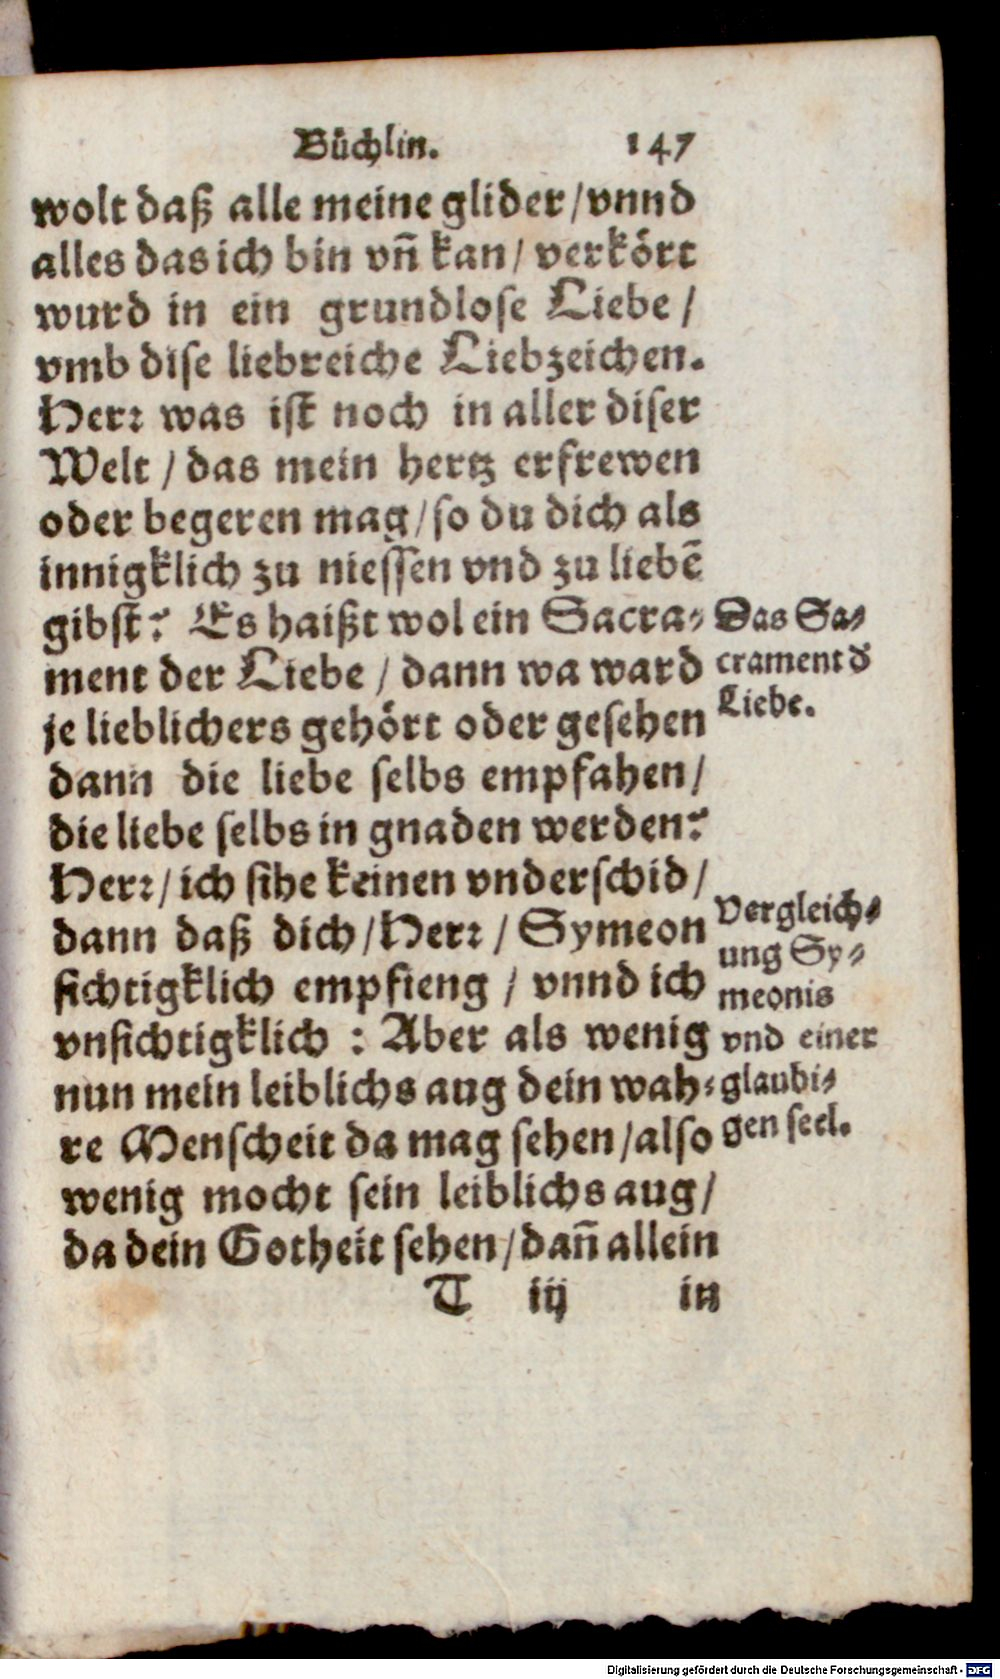 Büchlin. 147
wolt daß alle meine glider/vnnd
alles das ich bin vñ kan/ verkört
wurd in ein grundlose Liebe/
vmb dise liebreiche Liebzeichen.
Herr was ist noch in aller diser
Welt/ das mein hertz erfrewen
oder begeren mag/so du dich als
innigklich zu niessen vnd zu liebē
gibst? Es haißt wol ein Sacra-
ment der Liebe/ dann wa ward
je lieblichers gehört oder gesehen
dann die liebe selbs empfahen/
die liebe selbs in gnaden werden?
Herr/ich sihe keinen vnderschid/
dann daß dich/Herr/ Symeon
sichtigklich empfieng/ vnnd ich
vnsichtigklich: Aber als wenig
nun mein leiblichs aug dein wah-
re Menscheit da mag sehen/also
wenig mocht sein leiblichs aug/
da dein Gotheit sehen/dañ allein
T iij in
Das Sa-
crament d̕
Liebe.
Vergleich-
ung Sy-
meonis
vnd einer
glaubi-
gen seel.
Digitalisierung gefördert durch die Deutsche Forschungsgemeinschaft - DFG